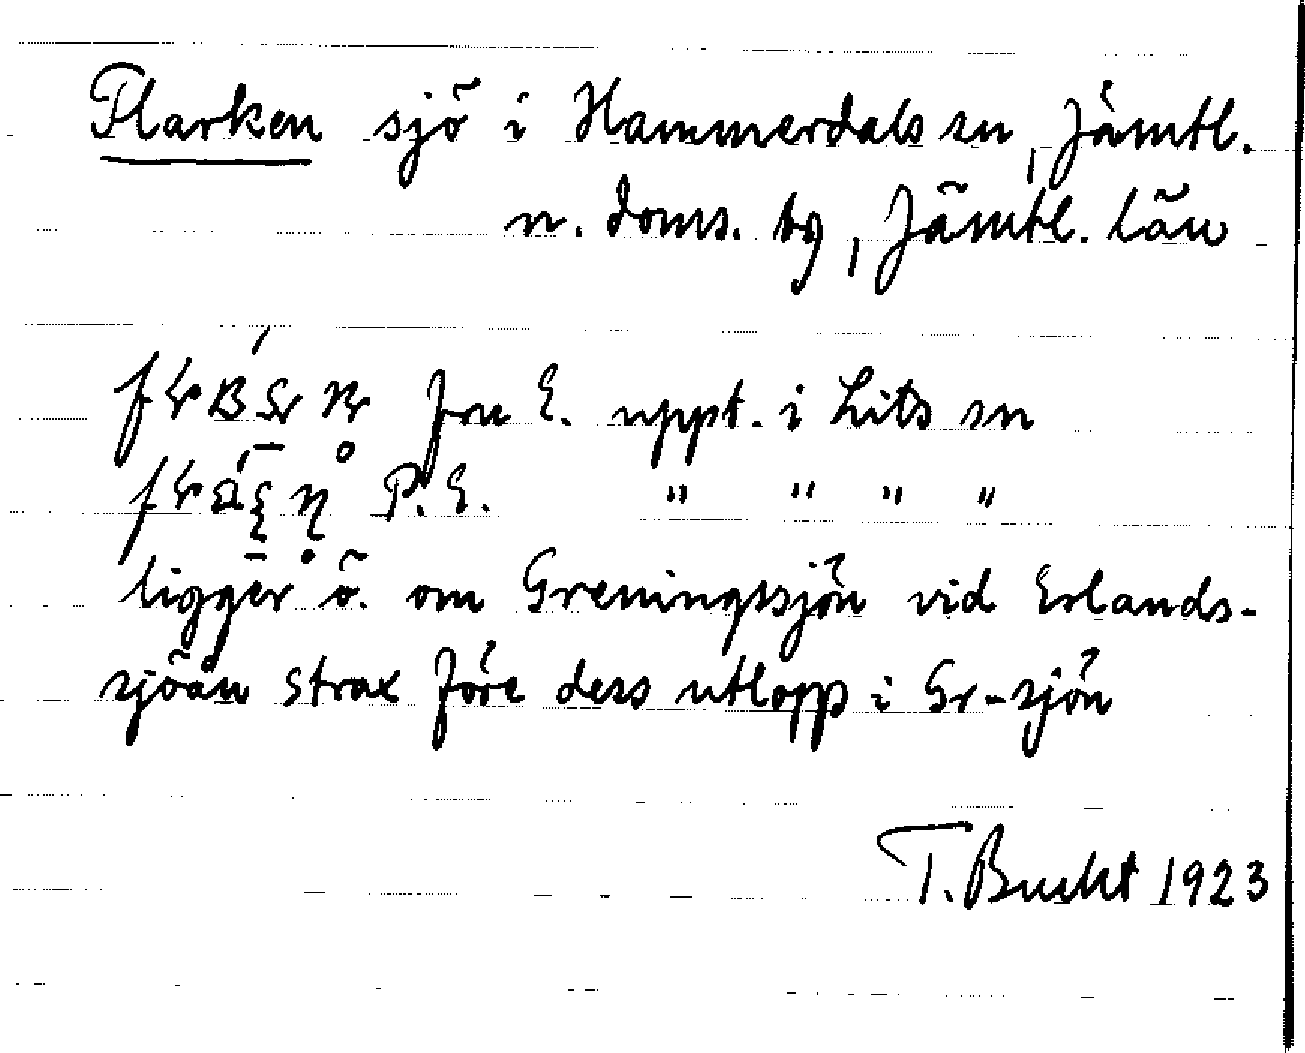 Flarken sjö i Hammerdals sn, Jämtl.
n. doms. by, Jämtl. län
fru E. uppt. i Lits sn
P. E. " " " "
ligger ö. om Greningssjön vid Erlands-
sjöån strax före dess utlopp i Gr-sjön
T. Bucht 1923